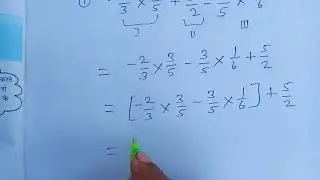 ① -2/3 × 3/5 + 5/2 - 3/5 × 1/6
I II III
= -2/3 × 3/5 - 3/5 × 1/6 + 5/2
= [-2/3 × 3/5 - 3/5 × 1/6] + 5/2
=